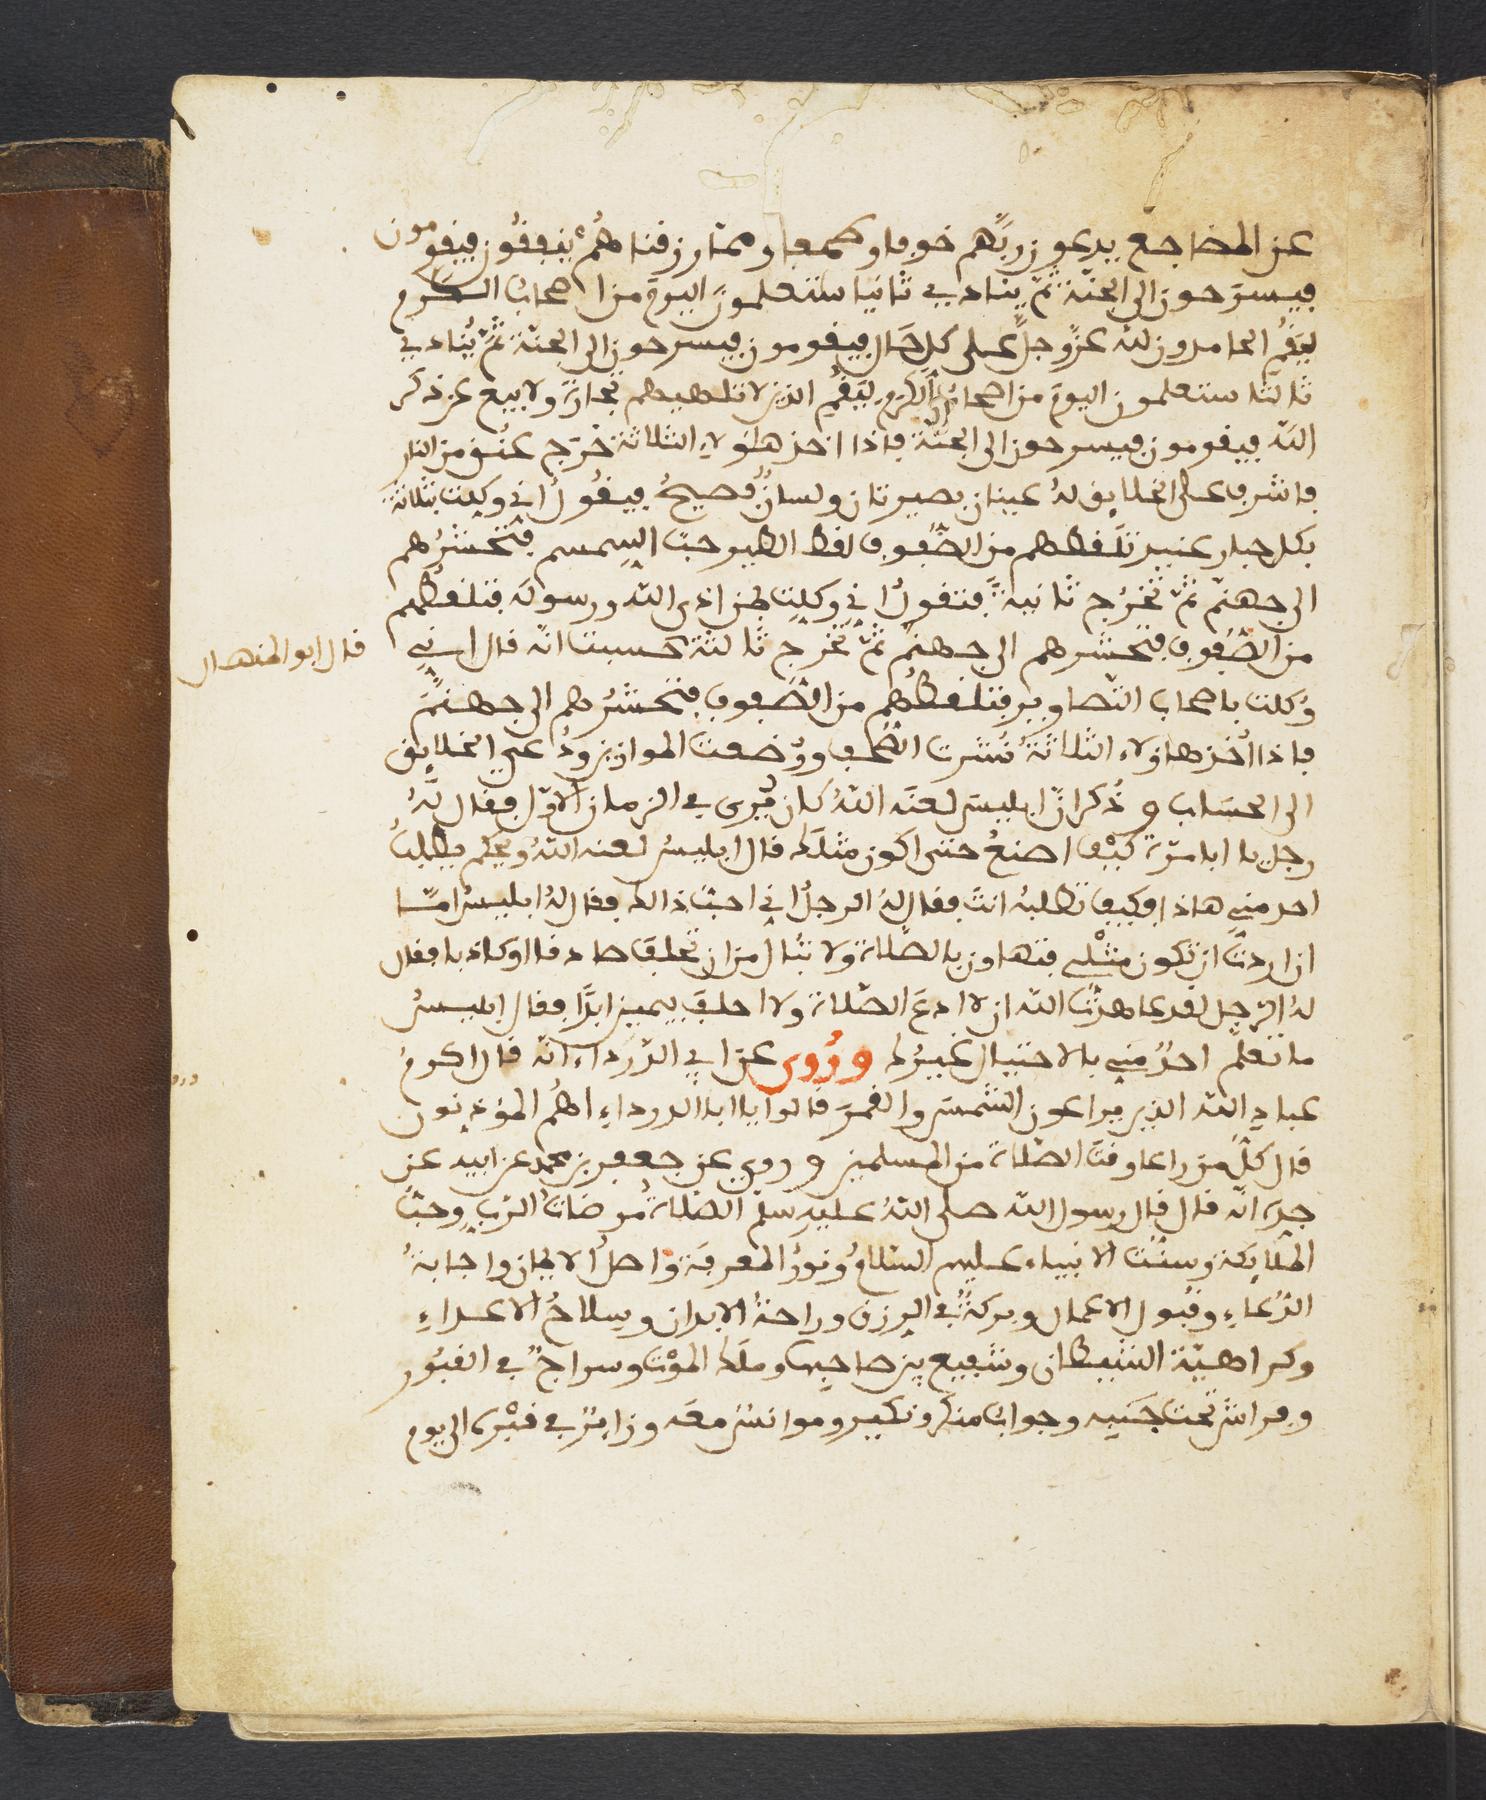 عن المضاجع يدعون ربَّهم خوفا وطمعا ومما رزقناهُمْ ينفقُون فيقومون
فيسرَحون إلى الجنّة ثمّ ينادي ثانيا ستعلمون اليومَ من اصحابُ الكرم
ليَقُمِ الحامدون لله عزّ وجلّ على كل حَال فيقومون فيسرحون إلى الجنّة ثمّ يُنادي
ثالثا ستعلمون اليوم من اصحابُ الكرم ليَقُمِ الذين لا تلهيهم تجارة ولا بيع عن ذكر
الله فيقومون فيسرحون إلى الجنّة فاذا اخذ هاؤلاء الثلاثة خرَج عنُق من النار
فاشرف على الخلايق لهُ عينان بصيرتان ولسانٌ فصيحٌ فيقُولُ اني وكلت بثلاثة
بكل جبار عنيد تلقطهم من الصُّفوف لقط الطير حبّ السمسم فتحشرُهم
الى جهنّم ثمّ تخرُج ثانيةً فتقولُ اني وكلت بمن اذى الله ورسوله فتلقطهم
من الصُّفوف فتحشرهم الى جهنّم ثمّ تخرُج ثالثة حسبت انّه قال اني
قال ابو المنهال
وُكلت باصحاب التّصاوير فتلقطُهم من الصّفوف فتحشرُهم الى جهنّم
فاذا أُخذ هاؤلاء الثلاثةُ نُشرت الصُّحف ووُضعت الموازين ودُعي الخلايق
الى الحسَاب وذُكر انّ ابليسَ لعنَه اللهُ كان يُرى في الزمان الاوّل فقال لهُ
رجل يا ابا مرّة كيْف اصنعُ حتى اكون مثلَك قال ابليسُ لعنه اللهُ ويحكم يطلبُ
احد مني هاذا فكيف تطلبه انتَ فقال لهُ الرجلُ اني احبّ ذالك فقال لهُ ابليسُ امّا
ان اردتَ ان تكون مثْلي فتهاون بالصّلاة ولا تبال من ان تحلف صادقا او كاذبا فقال
لهُ الرّجل لقد عاهدْتُ الله ان لا ادعَ الصّلاة ولا احلف يمين ابدًا فقال ابليسُ
ما تعلّم احدٌ مني بالاحتيال غيرُك ورُوِي عن ابي الدّرداء انّه قال اكرمُ
عبادِ الله الذين يراعون الشّمسَ والقمرَ قالوا يا ابا الدرداءِ اهُم المؤذنون
قال كلّ من راعا وقتَ الصّلاة من المسلمين وروي عن جعفر بن محمد عن ابيه عن
جدّه انّه قال قال رسول الله صلى اللهُ عليه سلم الصّلاةُ مرضاتُ الرّب وحبّ
الملَايكة وسنّت الانبياء عليهم السّلام ونورُ المعرفة واصلُ الايمان واجابةُ
الدّعاءِ وقبُول الاعمال وبركةٌ في الرزق وراحةُ الابدان وسِلاحُ الاعداءِ
وكراهيّة الشّيطان وشفيع بين صاحبها وملَك الموْت وسراجٌ في القبُور
وفراش تحت جنبيه وجوابُ منكر ونكير وموانسٌ معَه وزايرٌ في قبْره الى يوم